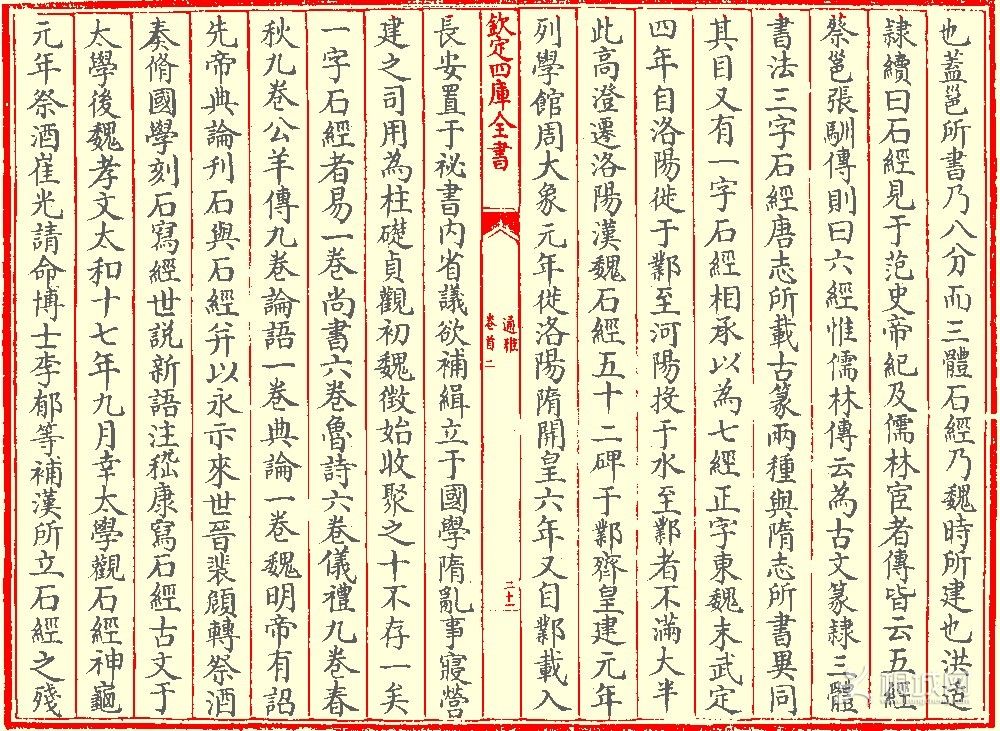 也蓋邕所書乃八分而三體石經乃魏時所建也洪适
隸續曰石經見于范史帝紀及儒林宦者傳皆云五經
蔡邕張馴傳則曰六經惟儒林傳云為古文篆隸三體
書法三字石經唐志所載古篆兩種與隋志所書異同
其目又有一字石經相承以為七經正字東魏末武定
四年自洛陽徙于鄴至河陽投于水至鄴者不滿大半
此高澄遷洛陽漢魏石經五十二碑于鄴齊皇建元年
列學館周大象元年徙洛陽隋開皇六年又自鄴載入
欽定四庫全書
通雅
卷首二
二十二
長安置于祕書內省議欲補緝立于國學隋亂事寢營
建之司用為柱礎貞觀初魏徵始收聚之十不存一矣
一字石經者易一卷尚書六卷魯詩六卷儀禮九卷春
秋九卷公羊傳九卷論語一卷典論一卷魏明帝有詔
先帝典論刊石與石經并以永示來世晉裴頠轉祭酒
奏脩國學刻石寫經世說新語注嵇康寫石經古文于
太學後魏孝文太和十七年九月幸太學觀石經神龜
元年祭酒崔光請命博士李郁等補漢所立石經之殘